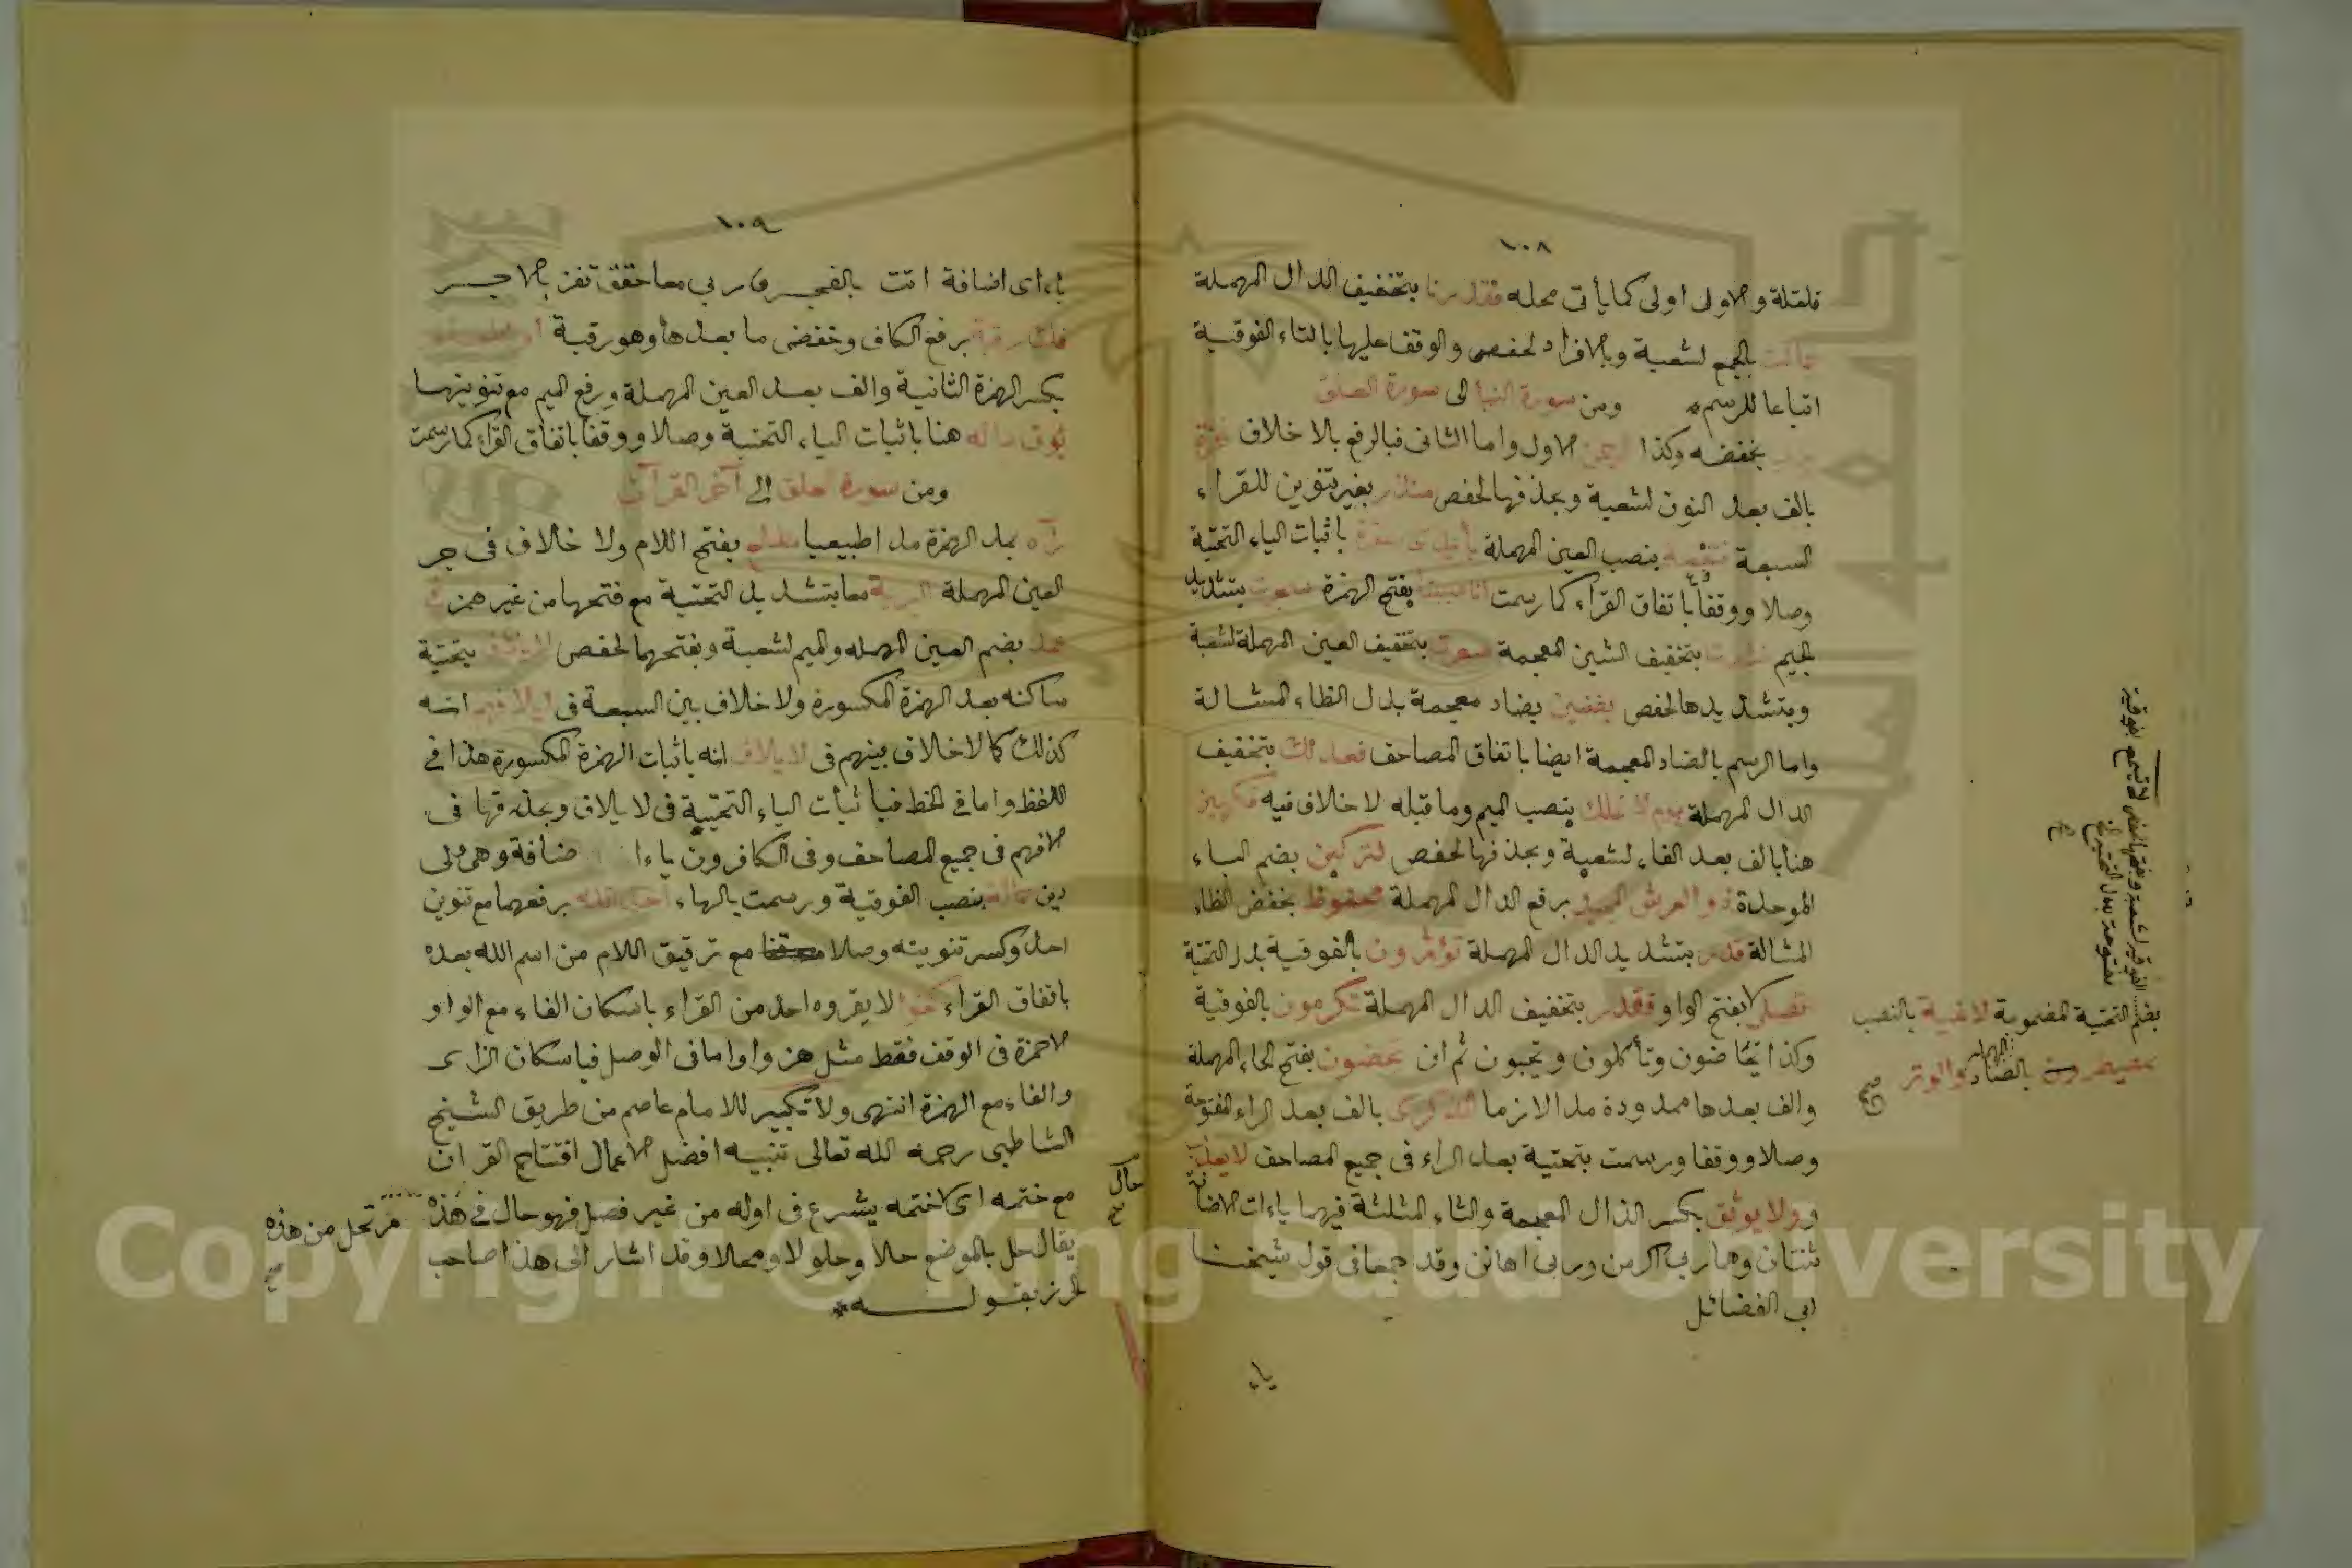 ١٠٨
قلقلة والاول اولى كما يأتى محله فقدرنا بتخفيف الدال المهملة
جمالت بالجمع لشعبة وبالافراد لحفص والوقف عليها بالتاء الفوقية
اتباعا للرسم * ومن سورة النبأ الى سورة العلق
رب بخفضه وكذا الرحمن الاول واما الثانى فبالرفع بلا خلاف نخرة
بالف بعد النون لشعبة وبحذفها لحفص منذر بغير تنوين للقراء
السبعة فتنفعه بنصب العين المهملة بأيدى سفرة باثبات الياء التحتية
وصلا ووقفا باتفاق القراء كما رسمت انا صببنا بفتح الهمزة سجرت بتشديد
الجيم نشرت بتخفيف الشين المعجمة سعرت بتخفيف العين المهملة لشعبة
وبتشديدها لحفص بضنين بضاد معجمة بدل الظاء المشالة
واما الرسم بالضاد المعجمة ايضا باتفاق المصاحف فعدلك بتخفيف
الدال المهملة يوم لا تملك بنصب الميم وما قبله لا خلاف فيه فكهين
هنا بالف بعد الفاء لشعبة وبحذفها لحفص لتركبن بضم الباء
الموحدة ذو العرش المجيد برفع الدال المهملة محفوظ بخفض الظاء
المشالة قدر بتشديد الدال المهملة تؤثرون بالفوقية بدل التحتية
تصلى بفتح الواو فقدر بتخفيف الدال المهملة تكرمون بالفوقية
وكذا تحاضون وتأكلون وتحبون ثم ان تحضون بفتح الحاء المهملة
والف بعدها ممدودة مدا لازما الذكرى بالف بعد الراء المفتوحة
وصلا ووقفا ورسمت بتحتية بعد الراء فى جميع المصاحف لا يعذب
وولا يوثق بكسر الذال المعجمة والثاء المثلثة فيهما ياءات الاضافة
ثنتان وهما ربى اكرمن وربى اهانن وقد جمعا فى قول شيخنا
ابى الفضائل
ياء
بضم التحتية المضمومة لاغية بالنصب
بمصيطرون بالصاد المهملة والوتر
صح
١٠٩
ياءاى اضافة اتت بالفجر فى ربي معا حقق تفز بالاجر
فك رقبة برفع الكاف وخفض ما بعدها وهو رقبة أو اطعام
بكسر الهمزة الثانية والف بعد العين المهملة ورفع الميم مع تنوينها
هنا باثبات الياء التحتية وصلا ووقفا باتفاق القراء كما رسمت
ومن سورة العلق الى آخر القرآن
رآه بمد الهمزة مدا طبيعيا مطلع بفتح اللام ولا خلاف فى جر
العين المهملة البرية معا بتشديد التحتية مع فتحها من غير همز فى
عمد بضم العين المهمله والميم لشعبة وبفتحهما لحفص لايلاف بتحتية
ساكنه بعد الهمزة المكسورة ولا خلاف بين السبعة فى ايلافهم انه
كذلك كما لا خلاف بينهم فى لايلاف انه باثبات الهمزة المكسورة هذا فى
اللفظ واما فى الخط فباثبات الياء التحتية فى لايلاف وبحذفها فى
الافهم فى جميع المصاحف وفى الكافرون ياء اضافة وهى ولى
دين حمالة بنصب الفوقية ورسمت بالهاء احد الله برفعهما مع تنوين
احد وكسر تنوينه وصلا مع ترقيق اللام من اسم الله بعده
باتفاق القراء كفوا لا يقروه احد من القراء باسكان الفاء مع الواو
الا حمزة فى الوقف فقط مثل هزوا واما فى الوصل فباسكان الزاى
والفاء مع الهمزة انتهى ولا تكبير للامام عاصم من طريق الشيخ
الشاطبى رحمه الله تعالى تنبيه افضل الاعمال افتتاح القران
مع ختمه اى كلما ختمه يشرع فى اوله من غير فصل فهو حال فى هذه
مرتحل من هذه
صح
حال
صح
يقال حل بالموضع حلا وحلولا ومحلا وقد اشار الى هذا صاحب
الحرز بقوله *
Copyright © King Saud University